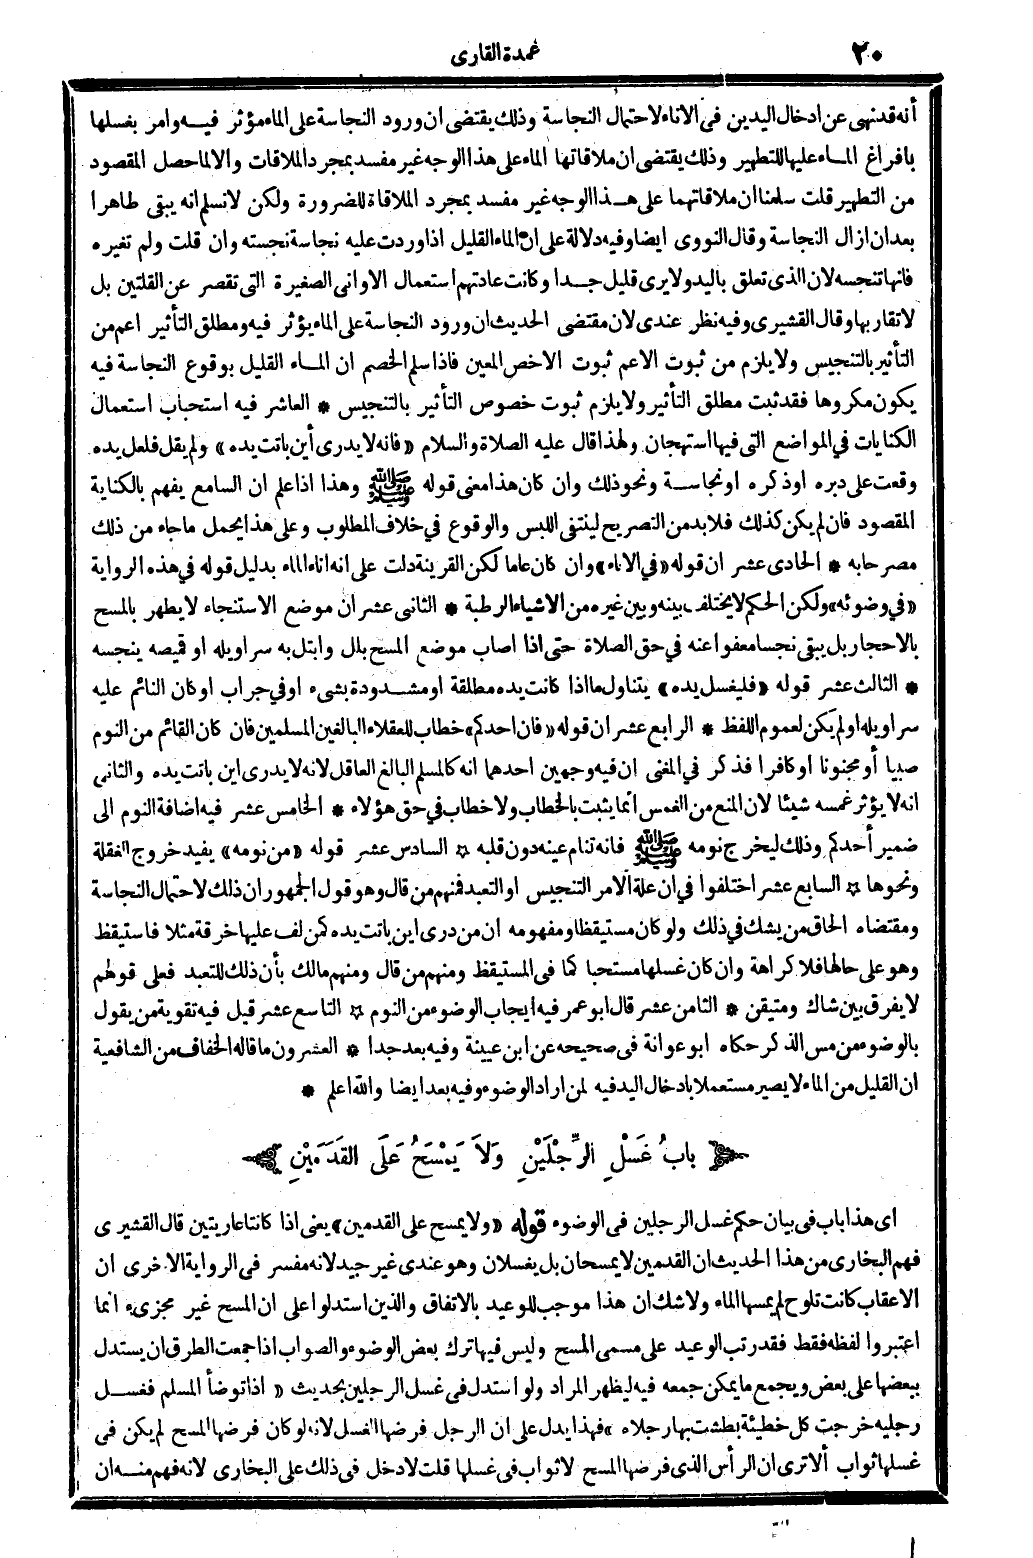 ٢٠
عمدة القارى
أنه قد نهى عن ادخال اليدين فى الاناء لاحتمال النجاسة وذلك يقتضى ان ورود النجاسة على الماء مؤثر فيه وامر بغسلها
بافراغ الماء عليها للتطهير وذلك يقتضى ان ملاقاتها الماء على هذا الوجه غير مفسد بمجرد الملاقات والا لما حصل المقصود
من التطهير قلت سلمنا ان ملاقاتهما على هذا الوجه غير مفسد بمجرد الملاقاة للضرورة ولكن لانسلم انه يبقى طاهرا
بعد ان ازال النجاسة وقال النووى ايضا وفيه دلالة على ان الماء القليل اذا وردت عليه نجاسة نجسته وان قلت ولم تغيره
فانها تنجسه لان الذى تعلق باليد ولا يرى قليل جدا وكانت عادتهم استعمال الاوانى الصغيرة التى تقصر عن القلتين بل
لا تقاربها وقال القشيرى وفيه نظر عندى لان مقتضى الحديث ان ورود النجاسة على الماء يؤثر فيه ومطلق التأثير اعم من
التأثير بالتنجيس ولا يلزم من ثبوت الاعم ثبوت الاخص المعين فاذا سلم الخصم ان الماء القليل بوقوع النجاسة فيه
يكون مكروها فقد ثبت مطلق التأثير ولا يلزم ثبوت خصوص التأثير بالتنجيس * العاشر فيه استحباب استعمال
الكنايات في المواضع التى فيها استهجان ولهذا قال عليه الصلاة والسلام «فانه لا يدرى أين باتت يده» ولم يقل فلعل يده
وقعت على دبره او ذكره او نجاسة ونحو ذلك وان كان هذا معنى قوله ﷺ وهذا اذا علم ان السامع يفهم بالكناية
المقصود فان لم يكن كذلك فلا بد من التصريح لينتفى اللبس والوقوع في خلاف المطلوب وعلى هذا يحمل ما جاء من ذلك
مصرحا به * الحادى عشر ان قوله «في الاناء» وان كان عاما لكن القرينة دلت على انه اناء الماء بدليل قوله في هذه الرواية
«في وضوئه» ولكن الحكم لا يختلف بينه وبين غيره من الاشياء الرطبة * الثانى عشر ان موضع الاستنجاء لا يطهر بالمسح
بالاحجار بل يبقى نجسا معفوا عنه في حق الصلاة حتى اذا اصاب موضع المسح بلل وابتل به سراويله او قميصه ينجسه
* الثالث عشر قوله «فليغسل يده» يتناول ما اذا كانت يده مطلقة او مشدودة بشىء او في جراب او كان النائم عليه
سراويله او لم يكن لعموم اللفظ * الرابع عشر ان قوله «فان احدكم» خطاب للعقلاء البالغين المسلمين فان كان القائم من النوم
صبيا أو مجنونا او كافرا فذكر في المغنى ان فيه وجهين احدهما انه كالمسلم البالغ العاقل لانه لا يدرى اين باتت يده والثانى
انه لا يؤثر غمسه شيئا لان المنع من الغمس انما يثبت بالخطاب ولا خطاب في حق هؤلاء * الخامس عشر فيه اضافة النوم الى
ضمير أحدكم وذلك ليخرج نومه ﷺ فانه تنام عينه دون قلبه ☆ السادس عشر قوله «من نومه» يفيد خروج الغفلة
ونحوها ☆ السابع عشر اختلفوا في ان علة الامر التنجيس او التعبد فمنهم من قال وهو قول الجمهور ان ذلك لاحتمال النجاسة
ومقتضاه الحاق من يشك في ذلك ولو كان مستيقظا ومفهومه ان من درى اين باتت يده كمن لف عليها خرقة مثلا فاستيقظ
وهو على حالها فلا كراهة وان كان غسلها مستحبا كما فى المستيقظ ومنهم من قال ومنهم مالك بأن ذلك للتعبد فعلى قولهم
لا يفرق بين شاك ومتيقن * الثامن عشر قال ابو عمر فيه ايجاب الوضوء من النوم ☆ التاسع عشر قيل فيه تقوية من يقول
بالوضوء من مس الذكر حكاه ابو عوانة فى صحيحه عن ابن عيينة وفيه بعد جدا * العشرون ما قاله الخفاف من الشافعية
ان القليل من الماء لا يصير مستعملا بادخال اليد فيه لمن اراد الوضوء وفيه بعد ايضا والله اعلم *
بابُ غَسْلِ الرِّجْلَيْنِ وَلاَ يَمْسَحُ عَلَى القَدَمَيْنِ
اى هذا باب فى بيان حكم غسل الرجلين فى الوضوء قوله «ولا يمسح على القدمين» يعنى اذا كانتا عاريتين قال القشيرى
فهم البخارى من هذا الحديث ان القدمين لا يمسحان بل يغسلان وهو عندى غير جيد لانه مفسر فى الرواية الاخرى ان
الاعقاب كانت تلوح لم يمسها الماء ولا شك ان هذا موجب للوعيد بالاتفاق والذين استدلوا على ان المسح غير مجزىء انما
اعتبروا لفظه فقط فقد رتب الوعيد على مسمى المسح وليس فيها ترك بعض الوضوء والصواب اذا جمعت الطرق ان يستدل
ببعضها على بعض ويجمع ما يمكن جمعه فيه ليظهر المراد ولو استدل فى غسل الرجلين بحديث « اذا توضأ المسلم فغسل
رجليه خرجت كل خطيئة بطشت بها رجلاه » فهذا يدل على ان الرجل فرضها الغسل لانه لو كان فرضها المسح لم يكن فى
غسلها ثواب ألا ترى ان الرأس الذى فرضها المسح لا ثواب فى غسلها قلت لا دخل فى ذلك على البخارى لانه فهم منه ان